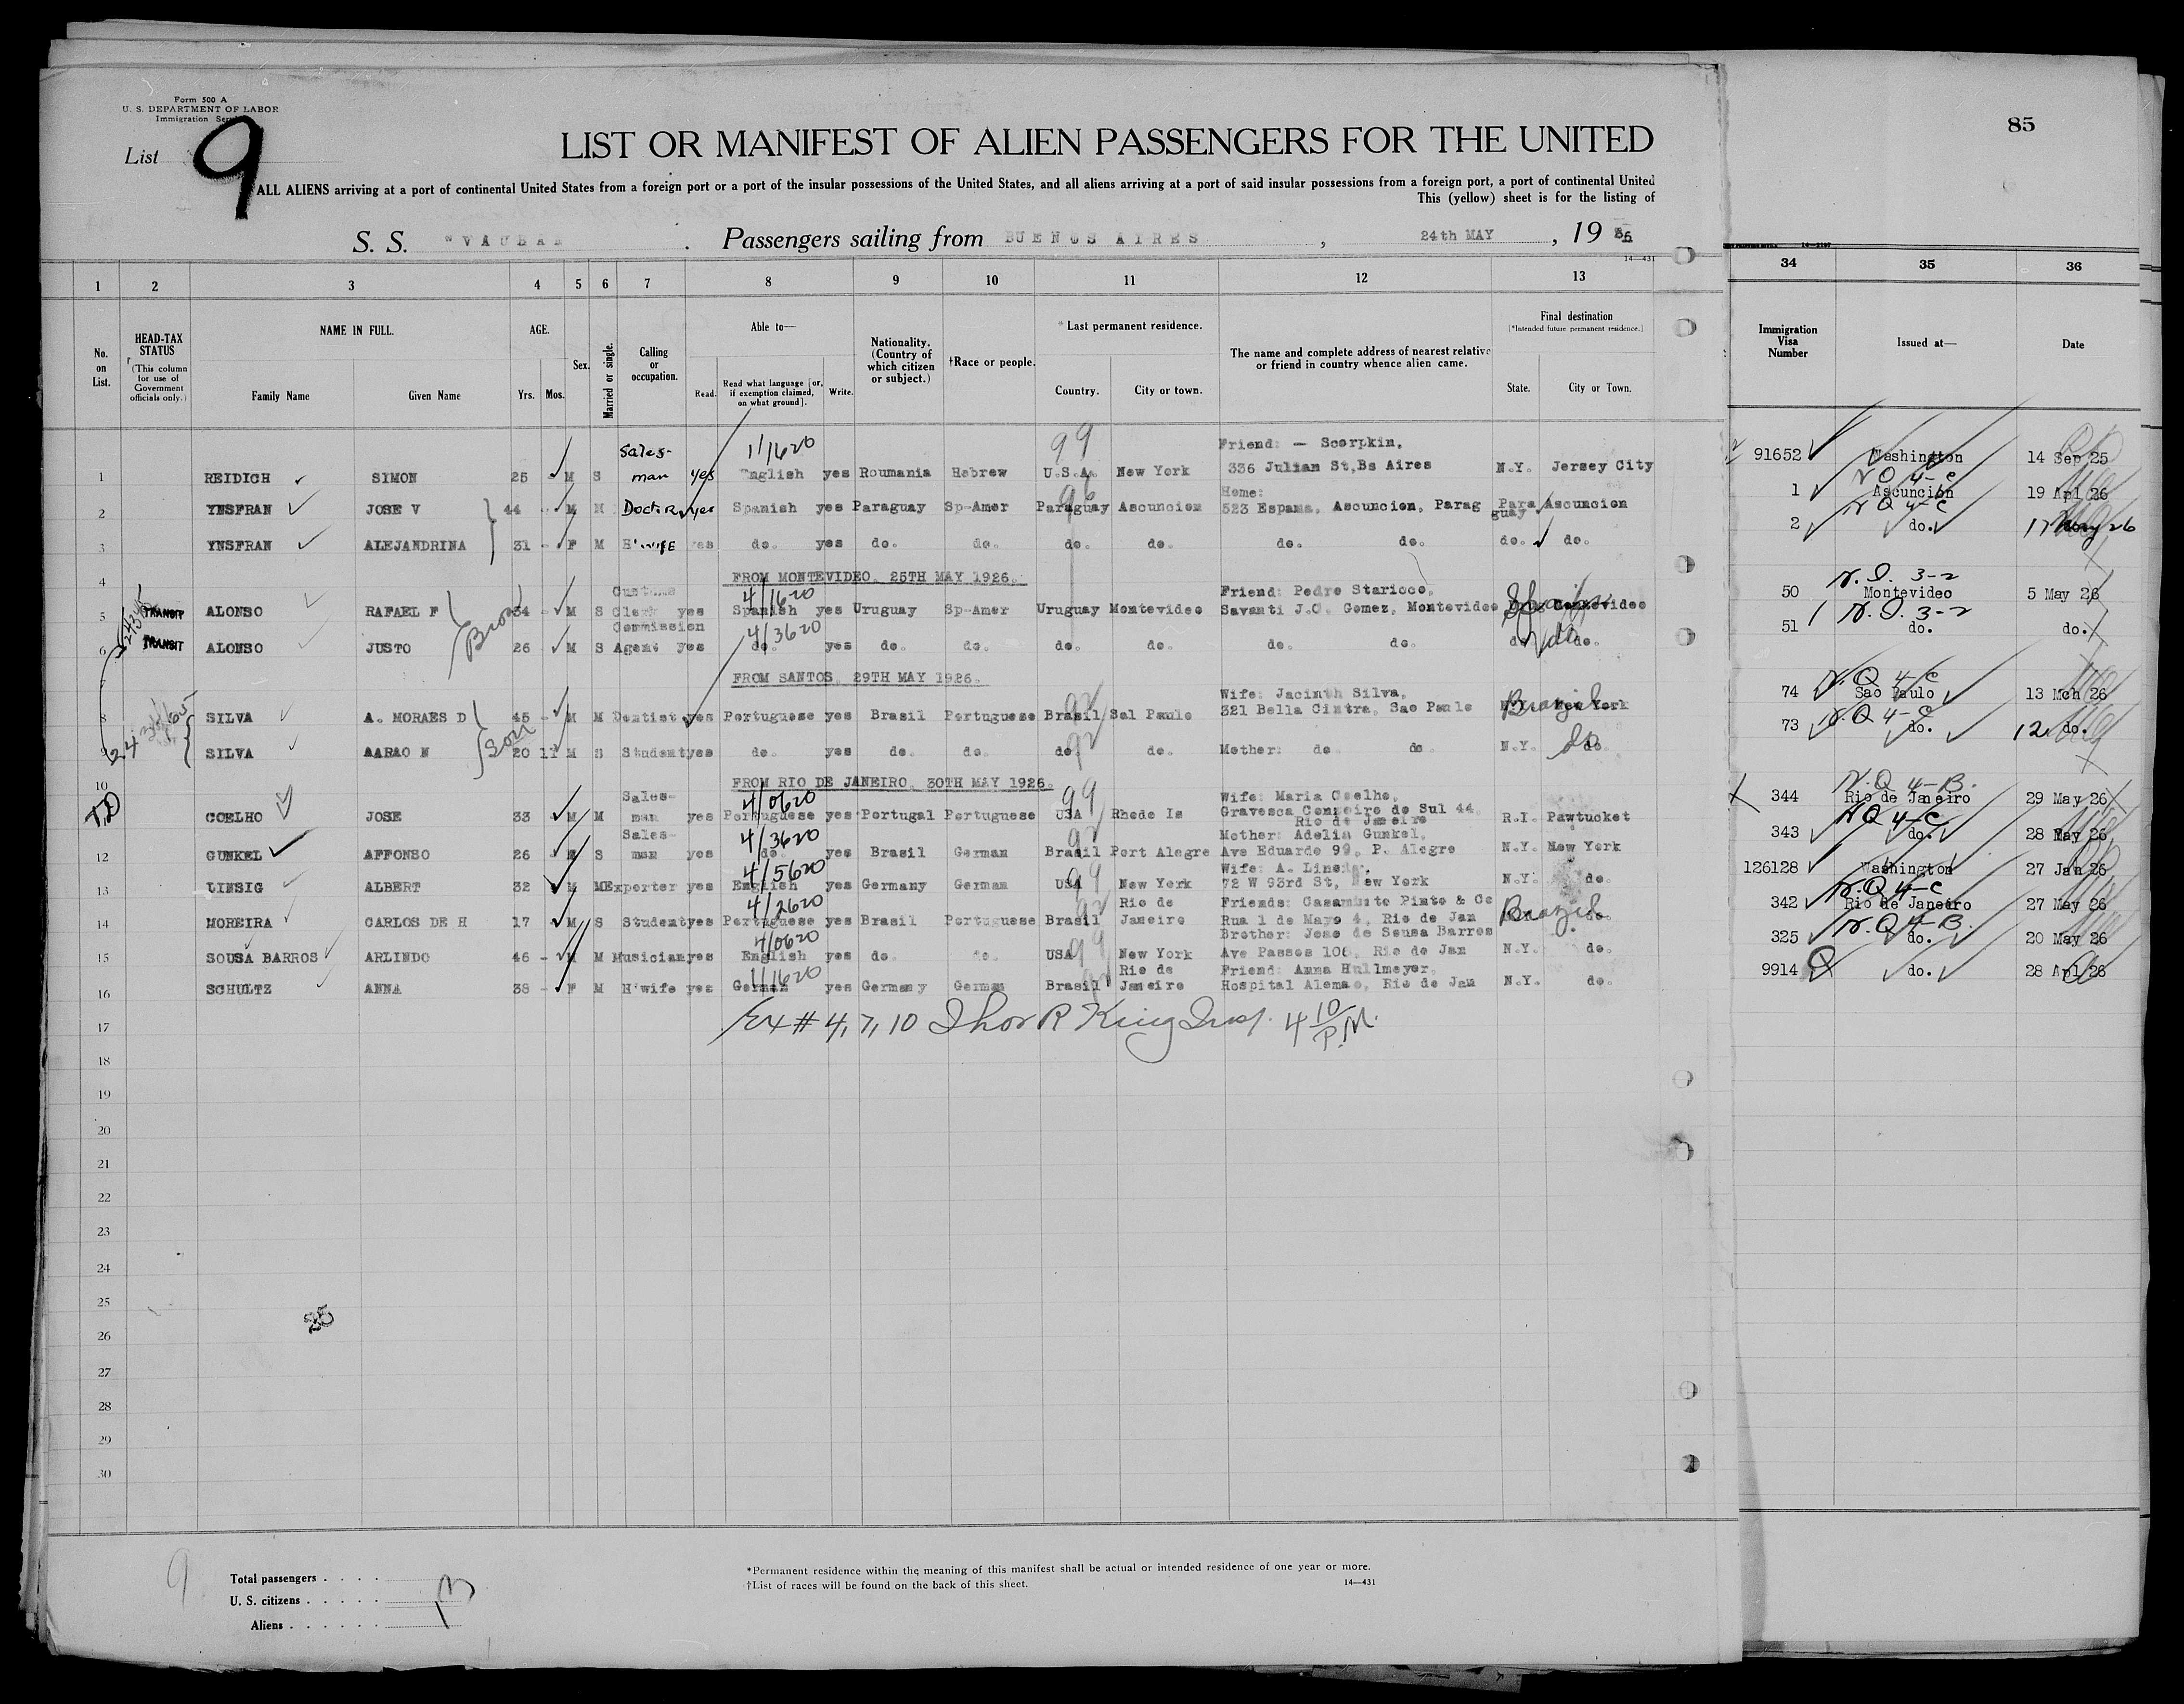 Form 500 A
U. S. DEPARTMENT OF LABOR
Immigration
List 9
85
LIST OR MANIFEST OF ALIEN PASSENGERS FOR THE UNITED
ALL ALIENS arriving at a port of continental United States from a foreign port or a port of the insular possessions of the United States, and all aliens arriving at a port of said insular possessions from a foreign port, a port of continental United
This (yellow) sheet is for the listing of
S. S. Passengers sailing from BUENOS AIRES, 24th MAY, 19
14—431
1 2 3 4 5 6 7 8 9 10 11 12 13 34 35 36
No. on List.
HEAD-TAX STATUS (This column for use of Government officials only.)
NAME IN FULL. Family Name Given Name
AGE. Yrs. Mos.
Sex.
Married or single.
Calling or occupation.
Able to— Read. Read what language [or, if exemption claimed, on what ground]. Write.
Nationality. (Country of which citizen or subject.)
†Race or people.
*Last permanent residence. Country. City or town.
The name and complete address of nearest relative or friend in country whence alien came.
Final destination (*Intended future permanent residence.) State. City or Town.
Immigration Visa Number
Issued at—
Date
1 REIDICH SIMON 25 M S Sales-man yes 1/1620 English yes Roumania Hebrew 99 U.S.A. New York Friend: — Scorpkin, 336 Julian St, Bs Aires N.Y. Jersey City 91652 Washington 14 Sep 25
2 YNSFRAN JOSE V 44 - M M Doctor yes Spanish yes Paraguay Sp-Amer Paraguay Ascuncion Home: 523 Espana, Ascuncion, Parag Paraguay Ascuncion 1 NQ 4-C Ascuncion 19 Apl 26
3 YNSFRAN ALEJANDRINA 31 - F M H'WIFE yes do. yes do. do. do. do. do. do. do. do. 2 NQ 4-C do. 17 May 26
4 FROM MONTEVIDEO. 25TH MAY 1926.
5 TRANSIT ALONSO RAFAEL F 34 - M S Customs Clerk yes 4/1620 Spanish yes Uruguay Sp-Amer Uruguay Montevideo Friend: Pedro Staricco, Savanti J.C. Gomez, Montevideo Montevideo 50 3-2 Montevideo 5 May 26
6 TRANSIT ALONSO JUSTO 26 - M S Commission Agent yes 4/3620 do. yes do. do. do. do. do. do. do. do. 51 3-2 do. do.
Bro
7 FROM SANTOS. 29TH MAY 1926.
8 SILVA A. MORAES D 45 - M M Dentist yes Portuguese yes Brasil Portuguese Brasil Sal Paulo Wife: Jacinth Silva, 321 Bella Cintra, Sao Paulo Brazil York 74 N.Q 4-C Sao Paulo 13 Mch 26
9 SILVA AARAO N 20 11 M S Student yes do. yes do. do. do. do. Mother: do do N.Y. do 73 N.Q 4-C do. 12 do.
Son
10 FROM RIO DE JANEIRO. 30TH MAY 1926.
COELHO JOSE 33 M M Sales-man yes 4/0620 Portuguese yes Portugal Portuguese 99 USA Rhode Is Wife: Maria Coelho, Gravesca Conneiro de Sul 44. Rio de Janeiro R.I. Pawtucket 344 N.Q 4-B. Rio de Janeiro 29 May 26
12 GUNKEL AFFONSO 26 M S Sales-man yes 4/3620 do. yes Brasil German Brasil Port Alegre Mother: Adelia Gunkel, Ave Eduardo 99, P. Alegre N.Y. New York 343 NQ 4-C do. 28 May 26
13 LINSIG ALBERT 32 M M Exporter yes 4/5620 English yes Germany German 99 USA New York Wife: A. 72 W 93rd St, New York N.Y. do. 126128 Washington 27 Jan 26
14 MOREIRA CARLOS DE H 17 M S Student yes 4/2620 Portuguese yes Brasil Portuguese Brasil Rio de Janeiro Friends: Pinto & Co Rua 1 de Mayo 4, Rio de Jan Brazil 342 N.Q 4-C Rio de Janeiro 27 May 26
15 SOUSA BARROS ARLINDO 46 - M M Musician yes 4/0620 English yes do. do. USA 99 New York Brother: Jose de Sousa Barros Ave Passos 106, Rio de Jan N.Y. do. 325 N.Q 4-B. do. 20 May 26
16 SCHULTZ ANNA 38 - F M H'wife yes 1/1620 German yes Germany German Brasil Rio de Janeiro Friend: Anna Hullmeyer, Hospital Alemao, Rio de Jan N.Y. do. 9914 do. 28 Apl 26
17 Ex # 4, 7, 10 Thor R King Insp. 4 10 P.M.
18
19
20
21
22
23
24
25
26
27
28
29
30
9
Total passengers
U. S. citizens
Aliens
*Permanent residence within the meaning of this manifest shall be actual or intended residence of one year or more.
†List of races will be found on the back of this sheet.
14—431